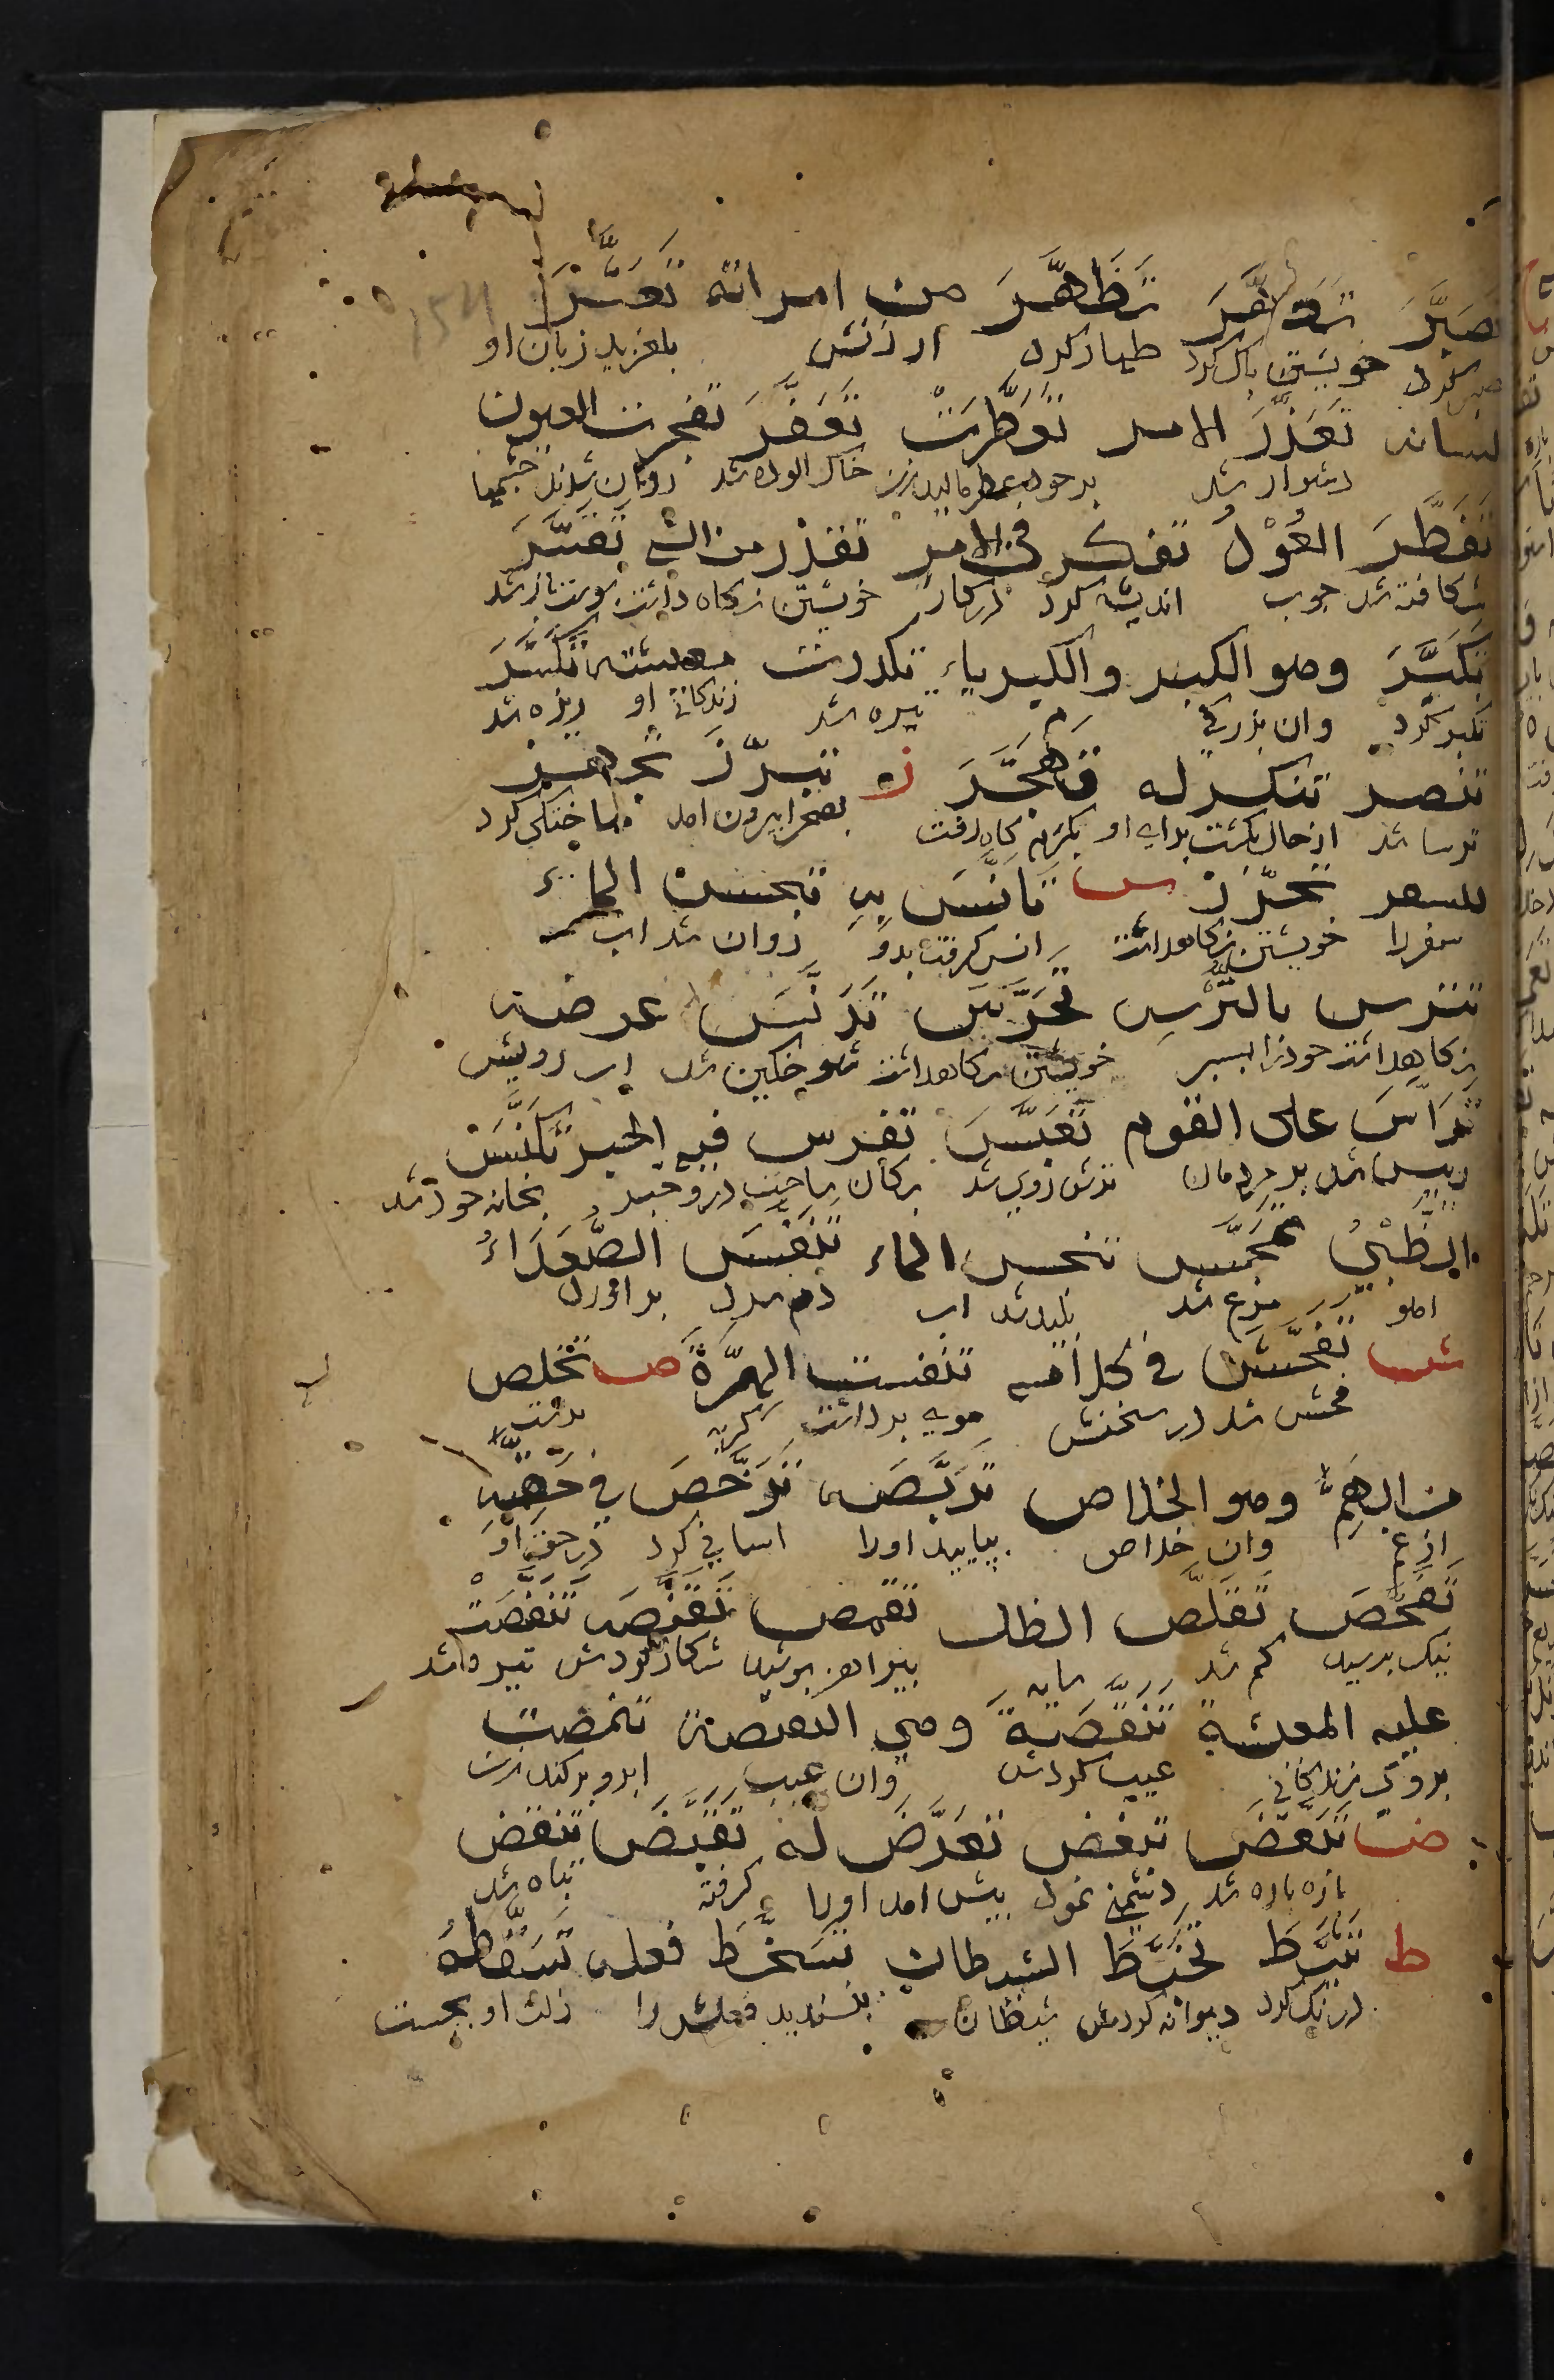 تَصَبَّرَ تَطَهَّرَ تَظَهَّرَ من امراته تَعَثَّرَ
صبر کرد خویشتن پاک کرد ظهار کرد از زنش بلغزید زبان او
لسانه تَعَذَّرَ الامر تَعَطَّرَتْ تَعَفَّرَ تفجرت العیون
دشوار شد بر خود عطر مالید زن خاک الوده شد روان شدند چشمها
تَفَطَّرَ العُوْدُ تفکر فی الامر تقذر من الشی تَقَشَّرَ
شکافته شد چوب اندیشه کرد در کار خویشتن نکاه داشت پوست باز شد
تَکَبَّرَ وهو الکبر والکبریاء تکدرت معیشته تَکَسَّرَ
تکبر کرد وان بزرکی تیره شد زندکانی او ریزه شد
تنصر تنکر له تَهَجَّرَ ز تبرّز تجهز
ترسا شد از حال بکشت برای او بصحرا بیرون امد ساختکی کرد
للسفر تحرّز س تَأَنَّسَ بِهِ تبجس الماء
سفر را خویشتن نکاهداشت انس کرفت بدو روان شد اب
تترس بالتُّرْسِ تَحَرَّسَ تَدَنَّسَ عرضه
نکاهداشت خود را بسپر خویشتن نکاهداشت شوخکین شد اب رویش
تَرَأَّسَ علی القوم تَعَبَّسَ تفرس فیه الخیر تَکَنَّسَ
رییس شد بر مردمان ترش روی شد بخانه خود شد
الظَّبْیُ تَمَجَّسَ تنجس الماء تَنَفَّسَ الصُّعَدَاءُ
اهو مغ شد پلید شد اب دم سرد براورد
ش تَفَحَّشَ فی کلامه تنفشت الهِرَّةُ ص تخلص
فحش شد در سخنش موی برداشت کربه برست
من الهَمِّ وهو الخلاص تَرَبَّصَه تَرَخَّصَ فی حَقِّهِ
از غم وان خلاص بپایید اورا اسانی کرد در حق او
تَفَحَّصَ تَقَلَّصَ الظل تقمص تَقَنَّصَه تَنَغَّصَتْ
نیک پرسید کم شد سایه پیراهن پوشید شکار کردش تیره شد
علیه المعیشة تَنَقَّصَهُ وهی النقیصة تنمصت
بروی زندکانی عیب کردش وان عیب ابرو برکند زن
ض تَبَعَّضَ تبغض تَعَرَّضَ لَهُ تَقَبَّضَ تنقض
پاره پاره شد دشمنی نمود پیش امد اورا کرفته تباه شد
ط تَثَبَّطَ تَخَبَّطَ الشیطان تَسَخَّطَ فعله تَسَقَّطَهُ
درنک کرد دیوانه کردش شیطان نپسندید فعلش را زلت او بجست